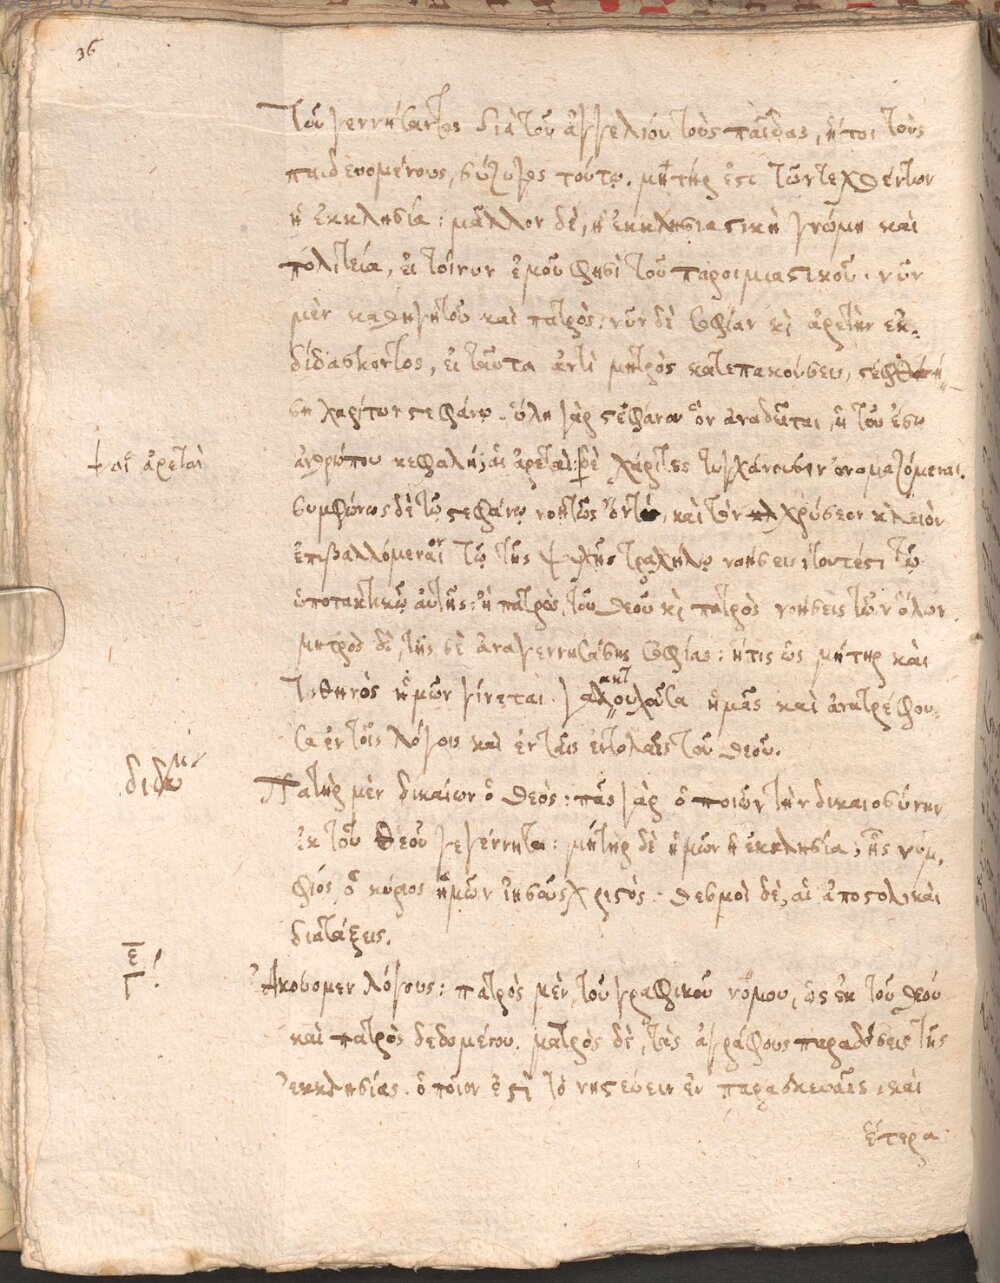 36
τοῦ γεννήσαντος διὰ τοῦ ἀγγελίου τοὺς παῖδας, ἤτοι τοὺς
παιδευομένους, σύζυγος τούτῳ. μήτηρ ἐστὶ τῶν τεχθέντων
ἡ ἐκκλησία: μᾶλλον δὲ, ἡ ἐκκλησιαστικὴ γνώμη καὶ
πολιτεία, εἰ τοίνυν ἐμοῦ φησὶ τοῦ παροιμιαστικοῦ. νῦν
μὲν καθηγητοῦ καὶ πατρὸς: νῦν δὲ σοφίαν κὶ ἀρετὴν ἐκ-
διδάσκοντος, εἰ ταῦτα ἀντὶ μητρὸς κατεπακούσεις,
χαρίτων στεφάνῳ. ὕλη γὰρ στεφάνου ὃν ἀναδεῖται, ἡ τοῦ ἔσω
ἀνθρώπου κεφαλή; αἱ ἀρεταὶ: δὲ χάριτες τυγχάνουσιν ὀνομαζόμεναι.
+ αἱ ἀρεταὶ
συμφώνως δὲ τῷ στεφάνῳ νοητῶς ὄντι, καὶ τὸν χρύσεον κλειὸν
ἐπιβαλλόμενον τῷ τῆς ψυχῆς τραχήλῳ νοήσεις, τουτέστι τῷ
ὑποτακτικῷ αὐτῆς: ἢ πατρὸς, τοῦ θεοῦ κὶ πατρὸς νοήσεις τῶν ὅλων.
μητρὸς δὲ, τῆς σὲ ἀναγεννησάσης σοφίας: ἥτις ὡς μήτηρ καὶ
τιθηνὸς ἡμῶν γίνεται. ἡμᾶς καὶ ἀνατρέφου-
σα ἐν τοῖς λόγοις καὶ ἐν ταῖς ἐντολαῖς τοῦ θεοῦ.
διδύμ
Πατὴρ μὲν δικαίων ὁ θεός: πᾶς γὰρ ὁ ποιῶν τὴν δικαιοσύνην
ἐκ τοῦ θεοῦ γεγέννηται: μήτηρ δὲ ἡμῶν ἡ ἐκκλησία, ἧς νυμ-
φίος ὁ κύριος ἡμῶν ἰησοῦς χριστός. θεσμοὶ δὲ, αἱ ἀποστολικαὶ
διατάξεις.
Ἀκούομεν λόγους: πατρὸς μὲν, τοῦ γραφικοῦ νόμου, ὡς ἐκ τοῦ θεοῦ
καὶ πατρὸς δεδομένου. ματρὸς δὲ, τὰς ἀγράφους παραδόσεις τῆς
ἐκκλησίας. ὁποῖον ἐστὶ τὸ νηστεύειν ἐν παρασκευαῖς, καὶ
ἕτερα